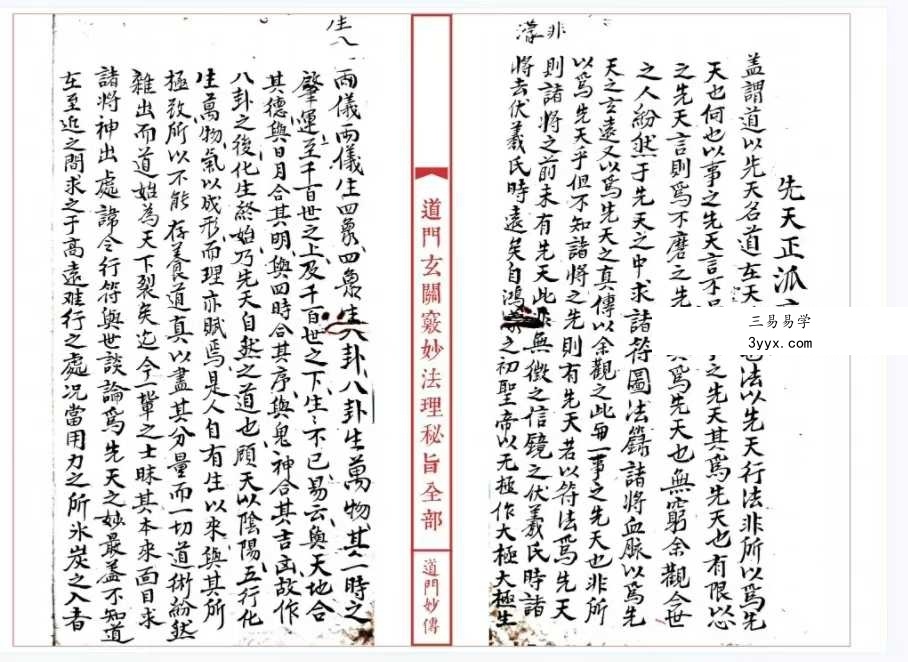 先天正派
盖謂道以先天名道在天也法以先天行法非所以爲先
天也何也以事之先天言之先天其爲先天也有限以
之先天言則爲不磨之先爲先天也無窮余觀今世
之人紛然于先天之中求諸符圖法籙諸將血脉以爲先
天之玄遠又以爲先天之真傳以余觀之此一事之先天也非所
以爲先天乎但不知諸將之先則有先天若以符法爲先天
則諸將之前未有先天此無徵之信鏡之伏羲氏時諸
將去伏羲氏時遠矣自鴻之初聖帝以无極作大極大極生
非
濛
道門玄關竅妙法理秘旨全部
道門妙傳
兩儀兩儀生四象四象生八卦八卦生萬物其一時之
肇運至千百世之上及千百世之下生〻不已易云與天地合
其德與日月合其明與四時合其序與鬼神合其吉凶故作
八卦之後化生終始乃先天自然之道也顧天以陰陽五行化
生萬物氣以成形而理亦賦焉是人自有生以來與其所
極致所以不能存養道真以盡其分量而一切道術紛然
雜出而道始為天下裂矣迄今一輩之士昧其本來面目求
諸將神出處諱令行符與世談論爲先天之妙最盖不知道
在至近之間求之于高遠难行之處况當用力之所氷炭之入者
生八
三易易学
3yyx.com